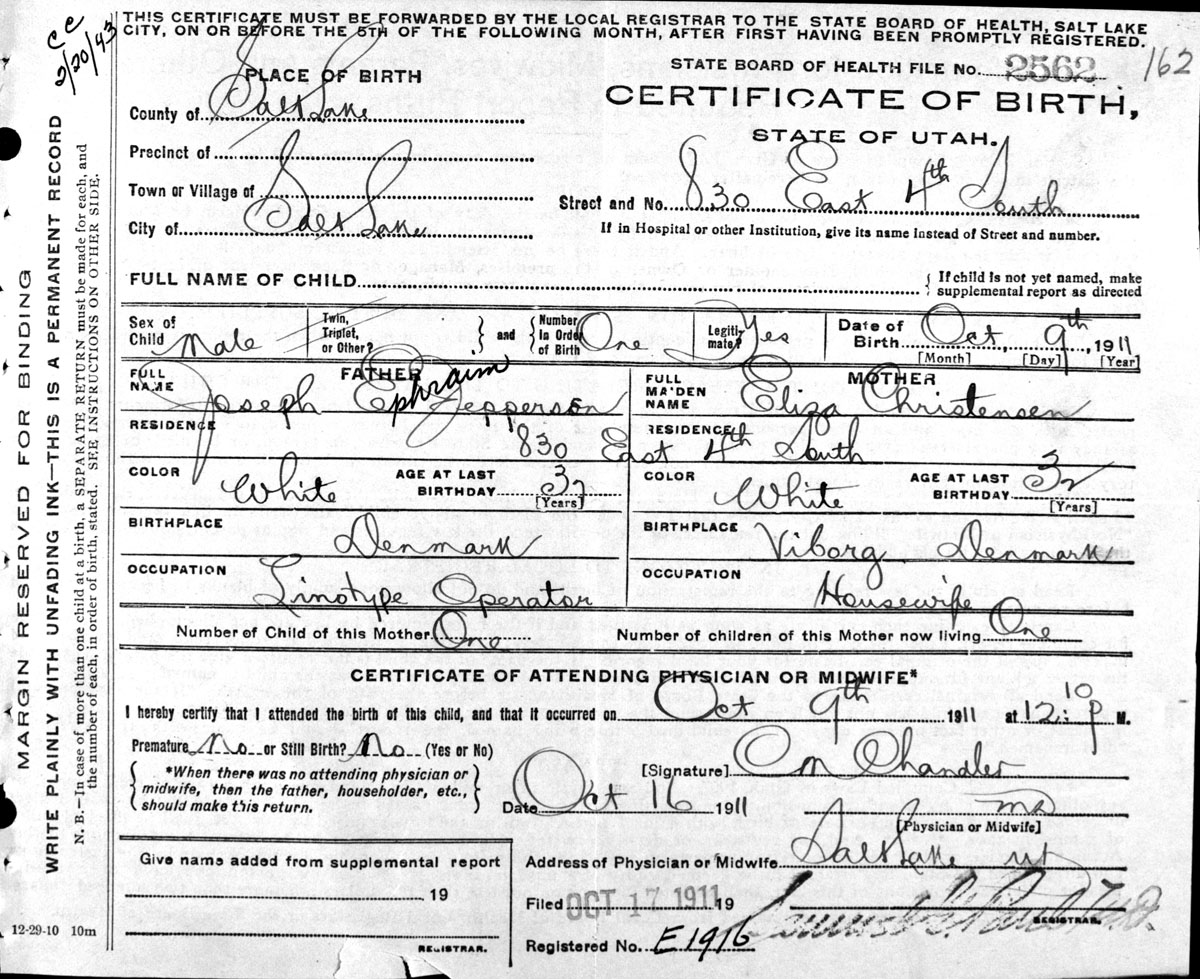 THIS CERTIFICATE MUST BE FORWARDED BY THE LOCAL REGISTRAR TO THE STATE BOARD OF HEALTH, SALT LAKE
CITY, ON OR BEFORE THE 5TH OF THE FOLLOWING MONTH, AFTER FIRST HAVING BEEN PROMPTLY REGISTERED.
CC
2/20/43
STATE BOARD OF HEALTH FILE No. 2562 162
PLACE OF BIRTH
CERTIFICATE OF BIRTH,
STATE OF UTAH.
County of Salt Lake
Precinct of
Town or Village of
City of Salt Lake
Street and No. 830 East 4th South
If in Hospital or other Institution, give its name instead of Street and number.
FULL NAME OF CHILD
{ If child is not yet named, make
supplemental report as directed
Sex of Child Male
Twin, Triplet, or Other?
and
Number in Order of Birth One
Legitimate? Yes
Date of Birth Oct 9th 1911
[Month] [Day] [Year]
FATHER
FULL NAME Joseph Ephraim Jepperson
MOTHER
FULL MAIDEN NAME Eliza Christensen
RESIDENCE RESIDENCE
830 East 4th South
COLOR White AGE AT LAST BIRTHDAY 32 [Years]
COLOR White AGE AT LAST BIRTHDAY 32 [Years]
BIRTHPLACE Denmark
BIRTHPLACE Viborg Denmark
OCCUPATION Linotype Operator
OCCUPATION Housewife
Number of Child of this Mother One
Number of children of this Mother now living One
CERTIFICATE OF ATTENDING PHYSICIAN OR MIDWIFE*
I hereby certify that I attended the birth of this child, and that it occurred on Oct 9th 1911 at 12:10 P M.
Premature No or Still Birth? No (Yes or No)
{ *When there was no attending physician or
midwife, then the father, householder, etc.,
should make this return. }
[Signature] C M Chandler
Date Oct 16 1911
MD
[Physician or Midwife]
Give name added from supplemental report
19
REGISTRAR.
Address of Physician or Midwife Salt Lake Ut
Filed OCT 17 1911 19
REGISTRAR.
Registered No. E1916
12-29-10 10m
MARGIN RESERVED FOR BINDING
WRITE PLAINLY WITH UNFADING INK—THIS IS A PERMANENT RECORD
N. B.—In case of more than one child at a birth, a SEPARATE RETURN must be made for each, and
the number of each, in order of birth, stated. SEE INSTRUCTIONS ON OTHER SIDE.